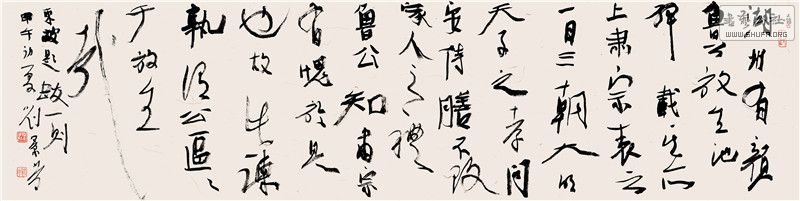 湖州有顏
魯公放生池
碑載其所
上肅宗表云
一日三朝大明
天子之孝問
安侍膳不改
家人之禮
魯公知肅宗
有愧於是
也故此諫
孰謂公區區
于放生
哉
東坡題跋一則
甲午初夏劉景